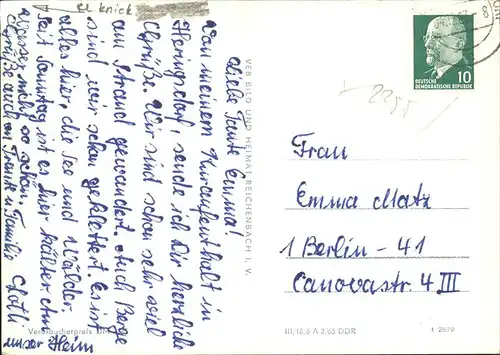 ck knick
Liebe Tante Emma!
Von meinem Kuraufenthalt in
Heringsdorf, sende ich Dir herzliche
Grüße. Wir sind schon sehr viel
am Strand gewandert, auch Berge
sind wir schon geklettert. Es ist
alles hier, die See und Wälder.
Seit Sonntag ist es hier kälter
Wasser nicht so schön,
Grüße auch an Trente u. Familie
unser Heim
VEB BILD UND HEIMAT REICHENBACH I. V.
Verbraucherpreis DM
DEUTSCHE
DEMOKRATISCHE REPUBLIK
10
8
Frau
Emma Matz
1 Berlin - 41
Canovastr. 4 III
III/18/6 A 3/63 DDR
1 2879